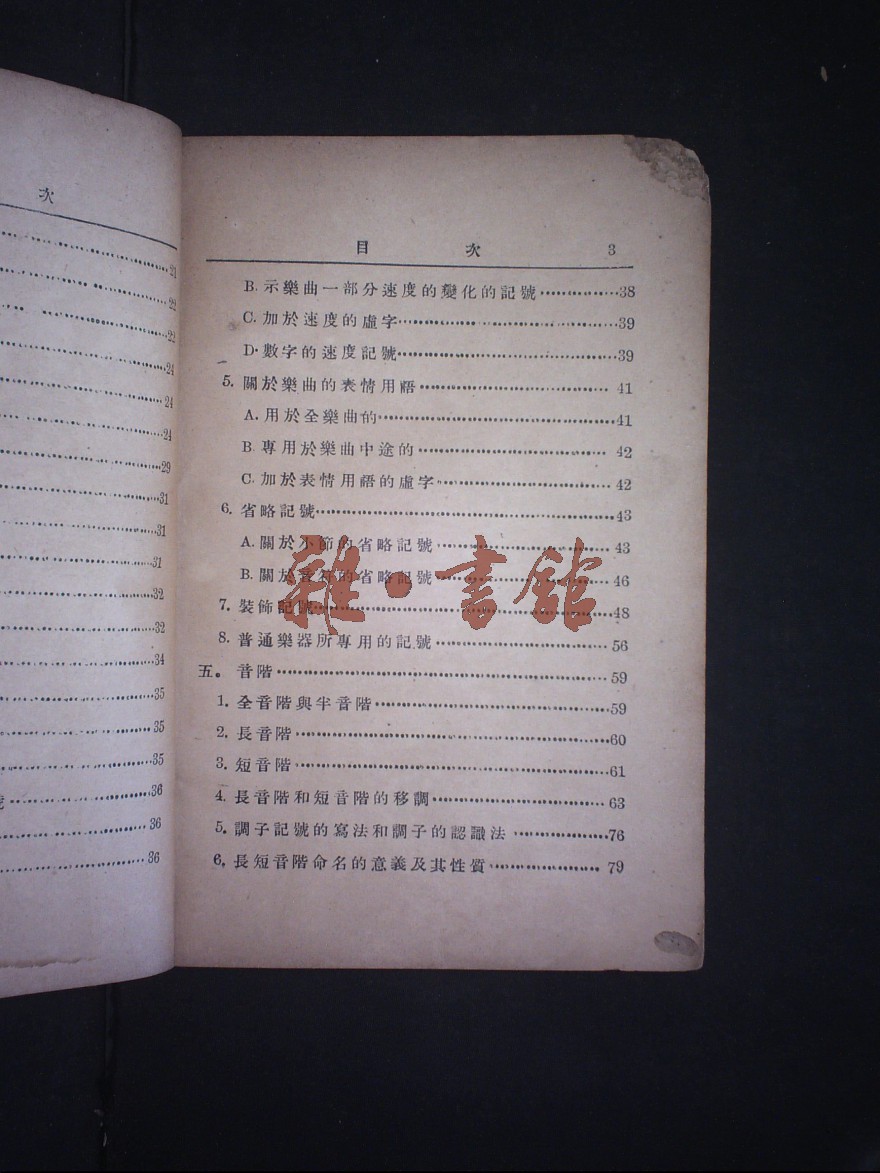 次
21
22
22
24
24
24
29
31
31
31
32
32
34
35
35
35
36
36
36
目 次 3
B. 示樂曲一部分速度的變化的記號……………38
C. 加於速度的虛字……………39
D. 數字的速度記號……………39
5. 關於樂曲的表情用語……………41
A. 用於全樂曲的……………41
B. 專用於樂曲中途的……………42
C. 加於表情用語的虛字……………42
6. 省略記號……………43
A. 關於小節的省略記號……………43
B. 關於音符的省略記號……………46
7. 裝飾記號……………48
8. 普通樂器所專用的記號……………56
五。音階……………59
1. 全音階與半音階……………59
2. 長音階……………60
3. 短音階……………61
4. 長音階和短音階的移調……………63
5. 調子記號的寫法和調子的認識法……………76
6. 長短音階命名的意義及其性質……………79
雜·書館